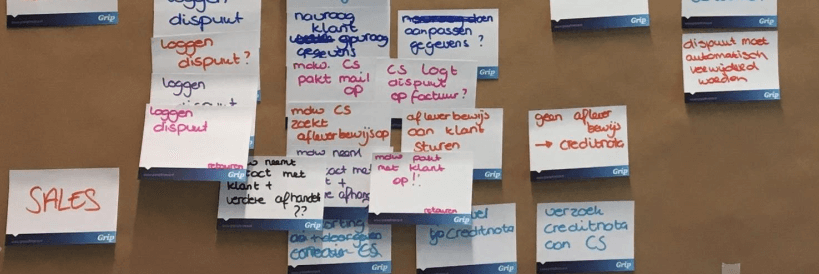 loggen
dispuut
Grip
loggen
dispuut?
loggen
dispuut
loggen
dispuut
retouren
navraag
klant
opvraag
gegevens
aanpassen
gegevens?
Grip
mdw. CS
pakt mail
op
CS logt
dispuut
op factuur?
mdw CS
zoekt
afleverbewijs op
afleverbewijs
aan klant
sturen
Grip
mdw neemt
contact met
klant +
verdere afhandel
??
Grip
mdw pakt
met klant
op!!
retouren
Grip
correction CS
Grip
creditnota
Grip
geen aflever
bewijs
→ creditnota
Grip
verzoek
creditnota
aan CS
Grip
dispuut moet
automatisch
verwijderd
worden
Grip
SALES
Grip
Grip
Grip